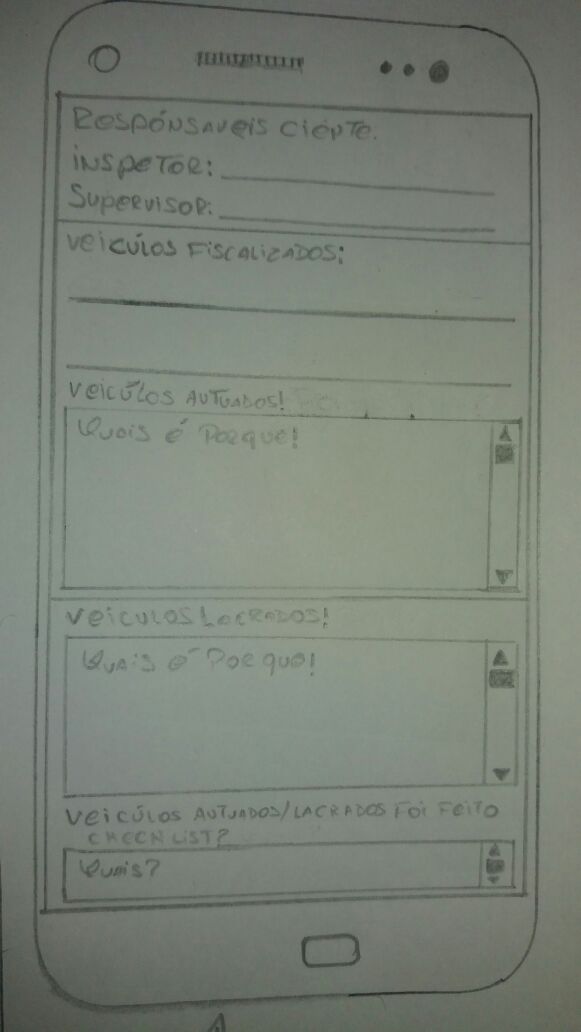 RESPÓNSAVEIS CIENTE.
INSPETOR:
SUPERVISOR:
VEICÚLOS FISCALIZADOS:
VEICÚLOS AUTUADOS!
QUAIS É PORQUE!
VEICULOS LACRADOS!
QUAIS É POR QUE!
VEICÚLOS AUTUADOS/LACRADOS FOI FEITO
CHECK LIST?
QUAIS?